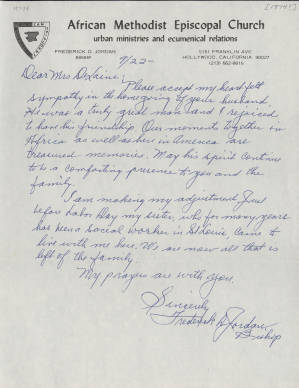 [1974?]
African Methodist Episcopal Church
urban ministries and ecumenical relations
FREDERICK D. JORDAN
BISHOP
5151 FRANKLIN AVE
HOLLYWOOD, CALIFORNIA 90027
9/22-
Dear Mrs DeLaine:
Please accept my heartfelt
sympathy in the homegoing of your husband.
He was a truly great man and I rejoiced
to have his friendship. Our moments together in
Africa as well as here in America are
treasured memories. May his spirit continue
to be a comforting presence to you and the
family.
I am making my adjustment. Just
before Labor Day my sister, who for many years
has been a Social worker in St Louis, came to
live with me here. We are now all that is
left of the family.
My prayers are with you.
Sincerely
Frederick D Jordan
Bishop